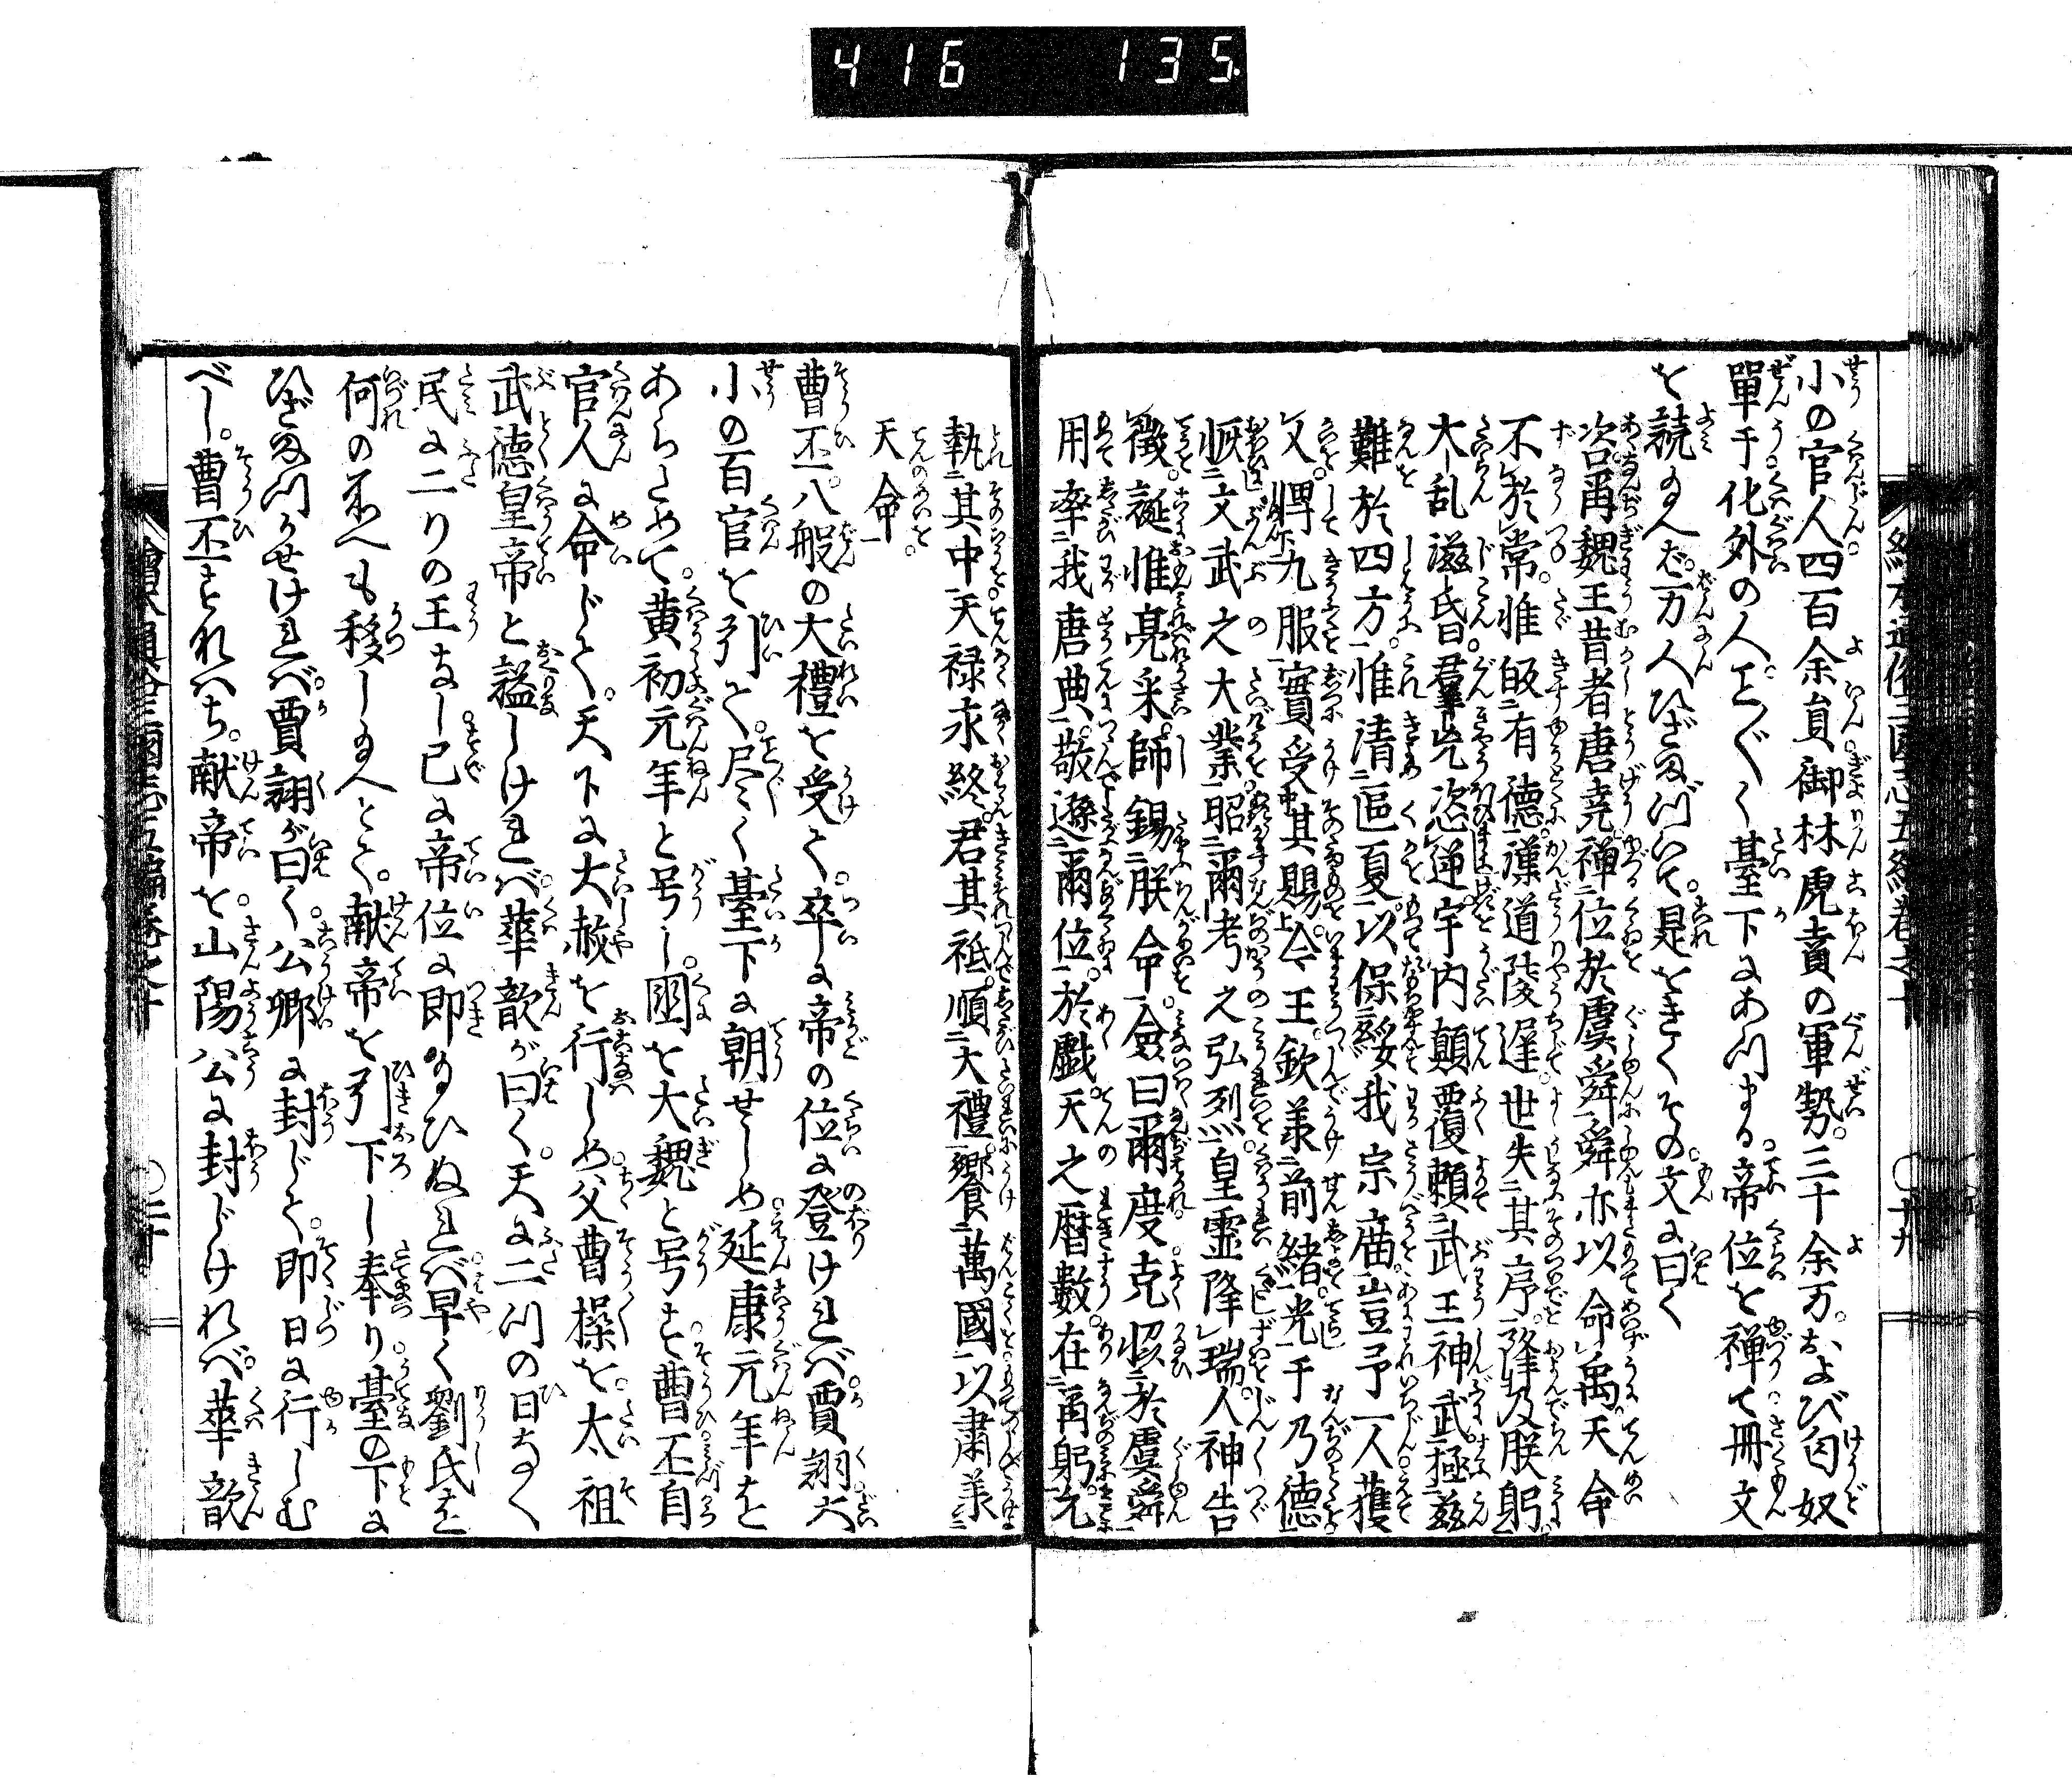 416 135
小の官人。四百余員。御林虎賁の軍勢。三十余万。および匈奴
單于化外の人。こと〲く臺下にあつまる。帝位を禅て冊文
を読給へば。万人ひざまづいて。是をきくその文に曰く
咨爾魏王昔者唐堯禅位於虞舜舜亦以命禹天命
不於常。惟皈有德。漢道陵遅世失其序。降及朕躬
大乱滋昏。羣兇恣逆。宇内顛覆頼武王神武。拯茲
難於四方。惟清區夏。以保綏我宗廟。豈予一人獲
乂。俾九服實受其賜。今王。欽羕前緒。光于乃德
恢文武之大業。昭爾考之弘烈。皇霊降瑞。人神告
徴。誕惟亮采。師錫朕命。僉曰爾度克恊於虞舜
用率我唐典。敬遜爾位。於戯。天之暦數。在爾躬。允
執其中。天禄永終。君其祗順大禮。饗萬國以肅羕
天命。
曹丕。八般の大禮を受て。卒に帝の位に登ければ。賈詡大
小の百官を引て。尽く臺下に朝せしめ。延康元年を
あらためて。黄初元年と号し。國を大魏と号す。曹丕自
官人に命じて。天下に大赦を行しめ。父曹操を。太祖
武德皇帝と謚しければ。華歆が曰く。天に二つの日なく
民に二りの王なし。已に帝位に即給ひぬれば。早く劉氏を
何の所へも移し給へとて。献帝を引下し奉り。臺の下に
ひざまつかせければ。賈詡が曰く。公卿に封じて。即日に行しむ
べし。曹丕すなはち。献帝を。山陽公に封じければ。華歆